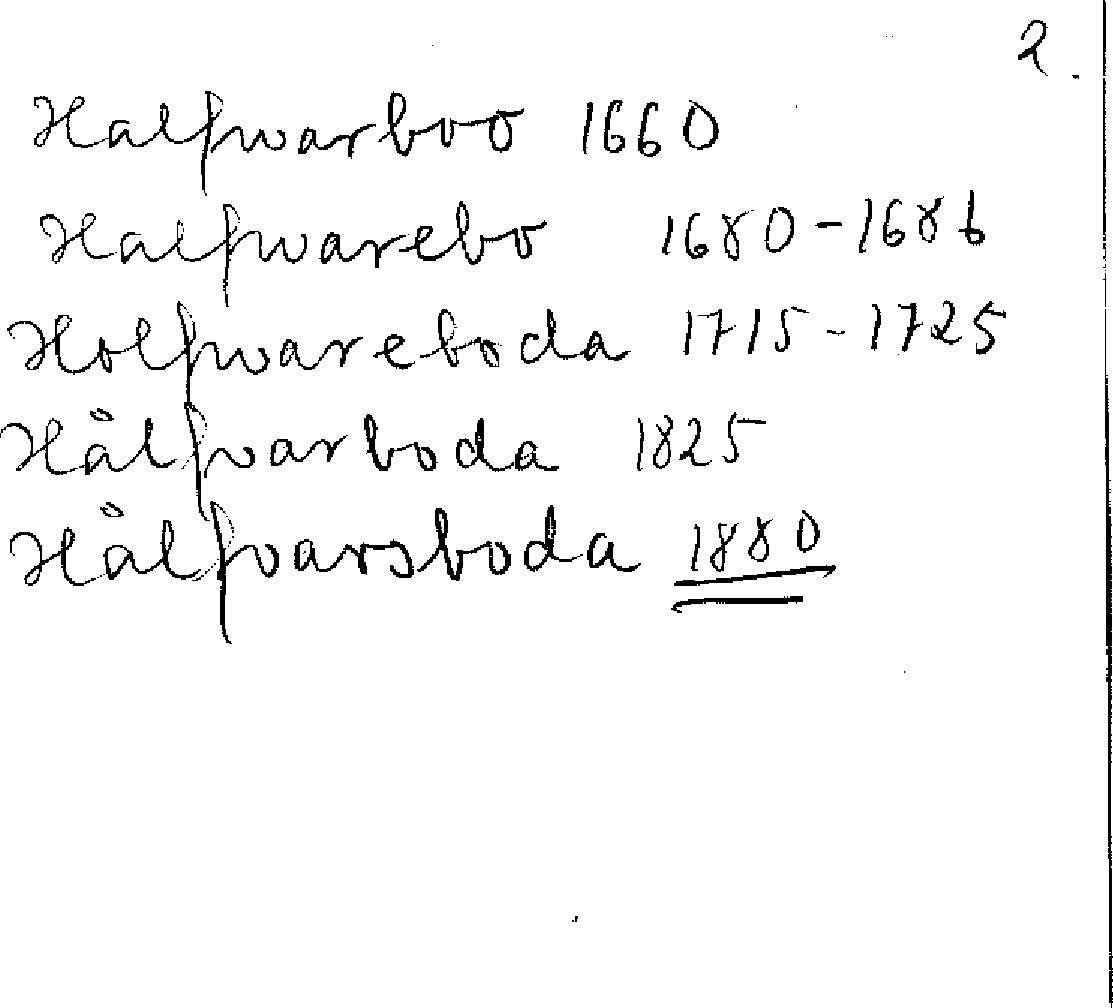 2.
Halfwarboo 1660
Halfwarebo 1680-1686
Holfwareboda 1715-1725
Hålfvarboda 1825
Hålfvarsboda 1880